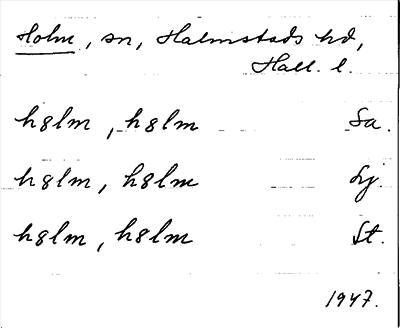 Holm, sn, Halmstads hd,
Hall. l.
h8lm, h8lm Sa.
h8lm, h8lm Lj.
h8lm, h8lm St.
1947.